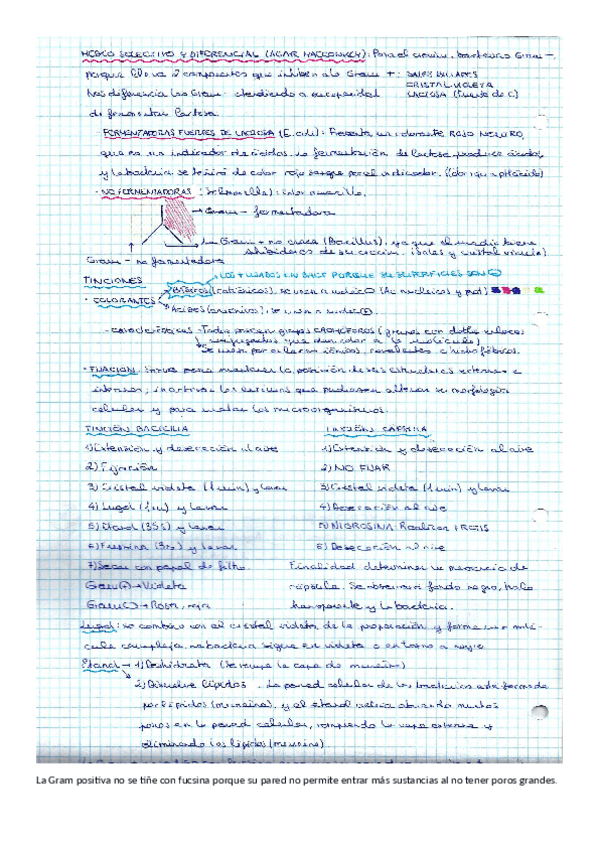 MEDIO SELECTIVO Y DIFERENCIAL (AGAR MACCONKEY): Para el crecim. bacterias Gram -,
porque lleva 2 componentes que inhiben a la Gram +: SALES BILIARES
CRISTAL VIOLETA
Nos diferencia las Gram - atendiendo a su capacidad LACTOSA (fuente de C)
de fermentar lactosa
- FERMENTADORAS FUERTES DE LACTOSA (E. coli): Presenta un colorante ROJO NEUTRO,
que es un indicador de ácidos, la fermentación de lactosa produce ácidos,
y la bacteria se teñirá de color rojo sangre por el indicador.
- NO FERMENTADORAS (Salmonella): color amarillo.
→ Gram - fermentadora
La Gram + no crece (Bacillus), ya que el medio tiene
inhibidores de su crecim. (sales y cristal violeta)
Gram - no fermentadora
TINCIONES LOS + USADOS EN BACT PORQUE SU SUPERFICIE SON ⊖
- COLORANTES BÁSICOS (catiónicos), se unen a moléc ⊖ (Ác nucleicos y prot)
ÁCIDOS (aniónico), se unen a moléc ⊕.
- características - Todos poseen grupos CROMÓFOROS (grupos con doble enlace
conjugados que dan color a la molécula)
Se unen por enlaces iónicos, covalentes o hidrofóbicos.
- FIJACIÓN: sirve para mantener la posición de las estructuras externas e
internas, inactivar las enzimas que pudiesen alterar su morfología
celular y para matar los microorganismos.
TINCIÓN BACILIA TINCIÓN CÁPSULA
1) Extensión y desecación al aire 1) Extensión y desecación al aire
2) Fijación 2) NO FIJAR
3) Cristal violeta (1 min) y lavar 3) Cristal violeta (1 min) y lavar
4) Lugol (1 m) y lavar 4) Desecación al aire
5) Etanol (35s) y lavar 5) NIGROSINA. Realizar FROTIS
6) Fucsina (3m) y lavar 6) Desecación al aire
7) Secar con papel de filtro. Finalidad determinar la presencia de
Gram ⊕ → Violeta cápsula. Se observará fondo negro, halo
Gram ⊖ → Rosa, rojo transparente y la bacteria.
Lugol: se combina con el cristal violeta de la preparación y forma una molé-
cula compleja, la bacteria sigue en violeta o en torno a negro
Etanol → 1) Deshidrata (Se rompe la capa de mureína)
2) Disuelve lípidos. La pared celular de las bacterias está formada
por lípidos (mureína), y el etanol actúa abriendo muchos
poros en la pared celular, rompiendo la capa externa y
eliminando los lípidos (mureína)
La Gram positiva no se tiñe con fucsina porque su pared no permite entrar más sustancias al no tener poros grandes.